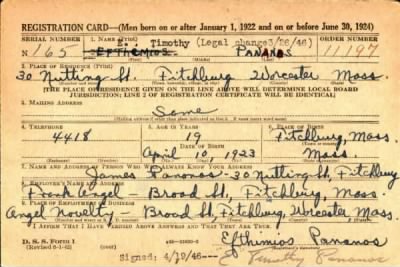 REGISTRATION CARD—(Men born on or after January 1, 1922 and on or before June 30, 1924)
SERIAL NUMBER
1. NAME (Print)
ORDER NUMBER
E. Timothy (Legal change 3/26/46)
N 165 EFTHEMIOS PANANOS 11197
2. PLACE OF RESIDENCE (Print)
30 Nutting St. Fitchburg Worcester Mass.
[THE PLACE OF RESIDENCE GIVEN ON THE LINE ABOVE WILL DETERMINE LOCAL BOARD
JURISDICTION; LINE 2 OF REGISTRATION CERTIFICATE WILL BE IDENTICAL]
3. MAILING ADDRESS
Same
4. TELEPHONE
5. AGE IN YEARS
6. PLACE OF BIRTH
4418 19 Fitchburg, Mass
DATE OF BIRTH
April 10 1923 Mass.
7. NAME AND ADDRESS OF PERSON WHO WILL ALWAYS KNOW YOUR ADDRESS
James Pananos - 30 Nutting St, Fitchburg
8. EMPLOYER'S NAME AND ADDRESS
Frank Angel - Broad St, Fitchburg, Mass.
Angel Novelty - Broad St, Fitchburg, Worcester, Mass.
I AFFIRM THAT I HAVE VERIFIED ABOVE ANSWERS AND THAT THEY ARE TRUE.
D. S. S. Form 1
Efthimios Pananos
Signed: 4/19/46— Timothy Pananos